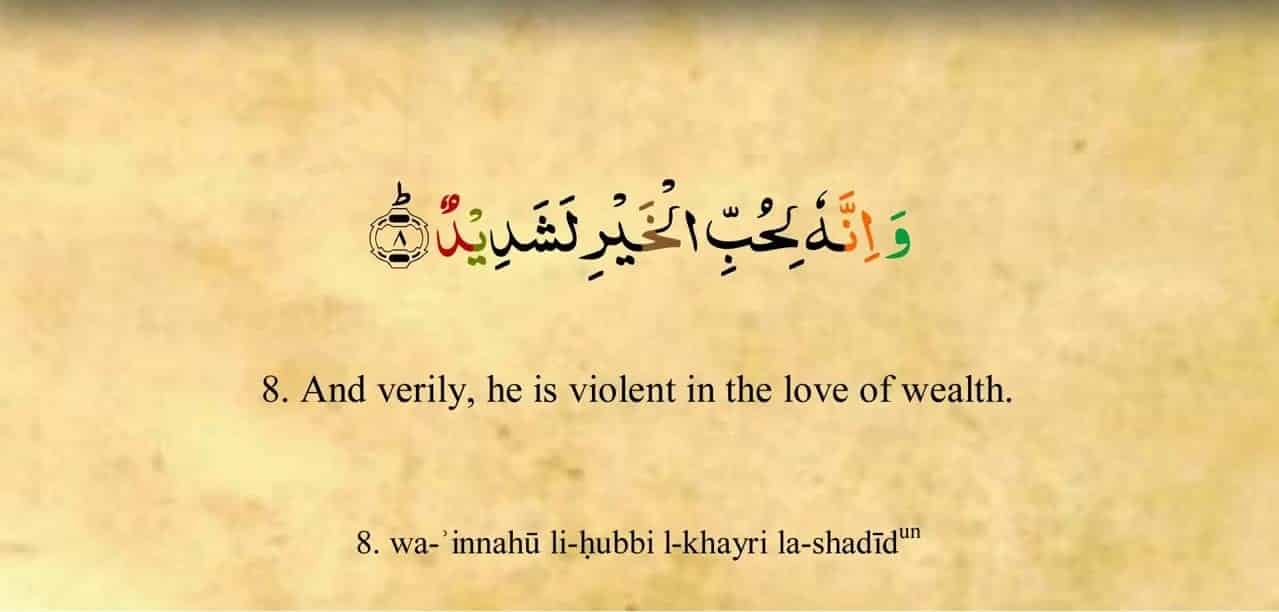 وَاِنَّهٗ لِحُبِّ الْخَيْرِ لَشَدِيْدٌ ؕ ۸
8. And verily, he is violent in the love of wealth.
8. wa-ʾinnahū li-ḥubbi l-khayri la-shadīdᵘⁿ